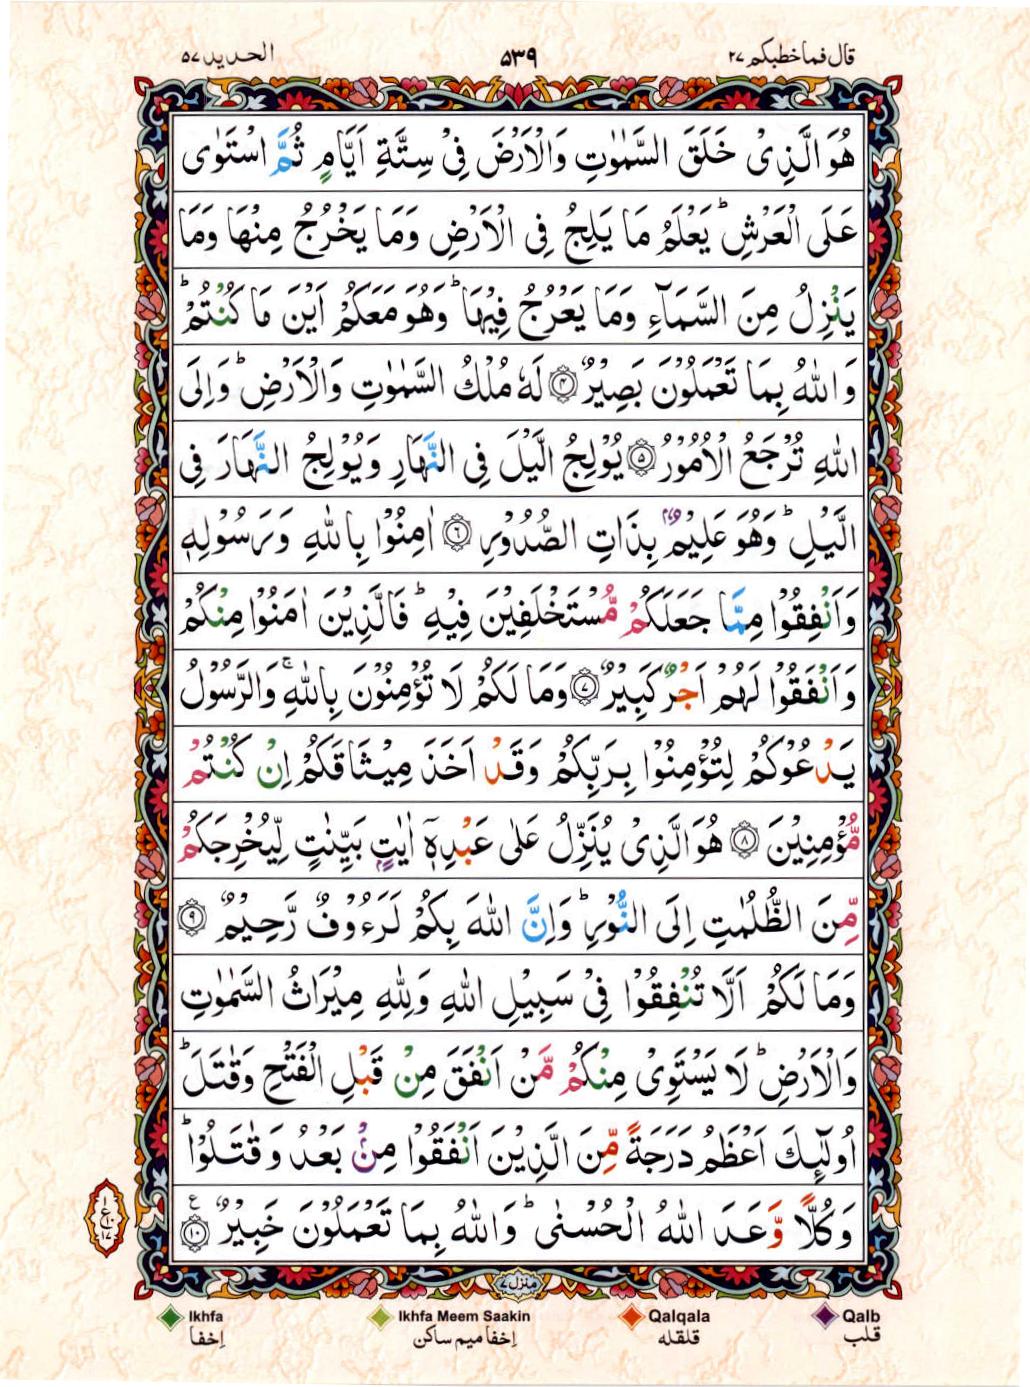 قال فماخطبکم ۲۷
۵۳۹
الحدید ۵۷
هُوَ الَّذِیْ خَلَقَ السَّمٰوٰتِ وَالْاَرْضَ فِیْ سِتَّةِ اَیَّامٍ ثُمَّ اسْتَوٰی
عَلَی الْعَرْشِ ؕ یَعْلَمُ مَا یَلِجُ فِی الْاَرْضِ وَمَا یَخْرُجُ مِنْهَا وَمَا
یَنْزِلُ مِنَ السَّمَآءِ وَمَا یَعْرُجُ فِیْهَا ؕ وَهُوَ مَعَكُمْ اَیْنَ مَا كُنْتُمْ ؕ
وَاللّٰهُ بِمَا تَعْمَلُوْنَ بَصِیْرٌ ۴ لَهٗ مُلْكُ السَّمٰوٰتِ وَالْاَرْضِ ؕ وَاِلَی
اللّٰهِ تُرْجَعُ الْاُمُوْرُ ۵ یُوْلِجُ الَّیْلَ فِی النَّهَارِ وَیُوْلِجُ النَّهَارَ فِی
الَّیْلِ ؕ وَهُوَ عَلِیْمٌۢ بِذَاتِ الصُّدُوْرِ ۶ اٰمِنُوْا بِاللّٰهِ وَرَسُوْلِهٖ
وَاَنْفِقُوْا مِمَّا جَعَلَكُمْ مُّسْتَخْلَفِیْنَ فِیْهِ ؕ فَالَّذِیْنَ اٰمَنُوْا مِنْكُمْ
وَاَنْفَقُوْا لَهُمْ اَجْرٌ كَبِیْرٌ ۷ وَمَا لَكُمْ لَا تُؤْمِنُوْنَ بِاللّٰهِ ۚ وَالرَّسُوْلُ
یَدْعُوْكُمْ لِتُؤْمِنُوْا بِرَبِّكُمْ وَقَدْ اَخَذَ مِیْثَاقَكُمْ اِنْ كُنْتُمْ
مُّؤْمِنِیْنَ ۸ هُوَ الَّذِیْ یُنَزِّلُ عَلٰی عَبْدِهٖۤ اٰیٰتٍۭ بَیِّنٰتٍ لِّیُخْرِجَكُمْ
مِّنَ الظُّلُمٰتِ اِلَی النُّوْرِ ؕ وَاِنَّ اللّٰهَ بِكُمْ لَرَءُوْفٌ رَّحِیْمٌ ۹
وَمَا لَكُمْ اَلَّا تُنْفِقُوْا فِیْ سَبِیْلِ اللّٰهِ وَلِلّٰهِ مِیْرَاثُ السَّمٰوٰتِ
وَالْاَرْضِ ؕ لَا یَسْتَوِیْ مِنْكُمْ مَّنْ اَنْفَقَ مِنْ قَبْلِ الْفَتْحِ وَقٰتَلَ ؕ
اُولٰٓئِكَ اَعْظَمُ دَرَجَةً مِّنَ الَّذِیْنَ اَنْفَقُوْا مِنْۢ بَعْدُ وَقٰتَلُوْا ؕ
وَكُلًّا وَّعَدَ اللّٰهُ الْحُسْنٰی ؕ وَاللّٰهُ بِمَا تَعْمَلُوْنَ خَبِیْرٌ ۱۰ ع
۱ ع ۱۰ ۱۷
منزل ۷
Ikhfa
Ikhfa Meem Saakin
Qalqala
Qalb
اِخفا
اِخفا میم ساکن
قلقله
قلب